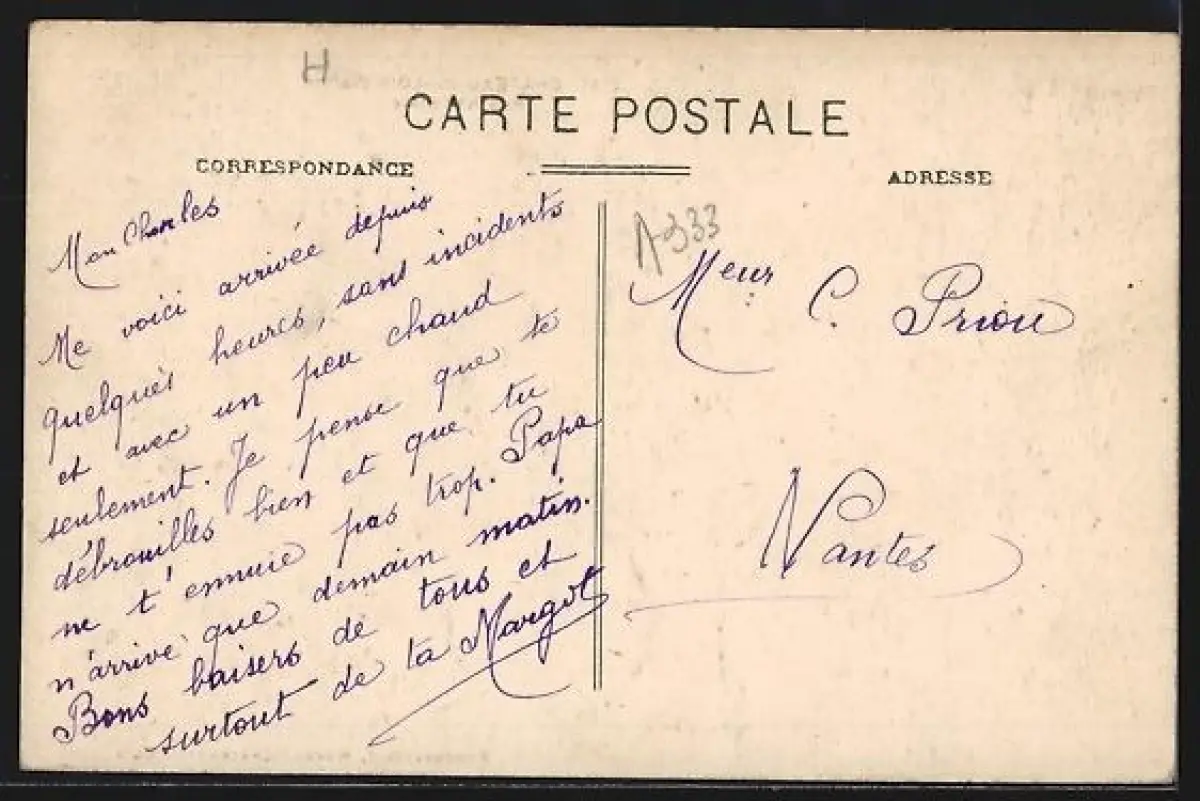 H
CARTE POSTALE
CORRESPONDANCE
ADRESSE
Mon Charles
Me voici arrivée depuis
quelques heures, sans incidents
et avec un peu chaud
seulement. Je pense que te
débrouilles bien et que tu
ne t'ennuie pas trop. Papa
n'arrive que demain matin.
Bons baisers de tous et
surtout de ta Margot
A-933
Meur C. Priou
Nantes